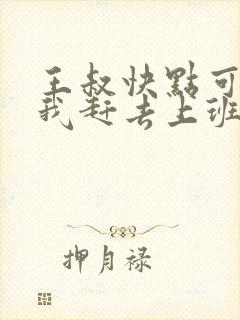 王叔快點可
我赶去上班
押月禄